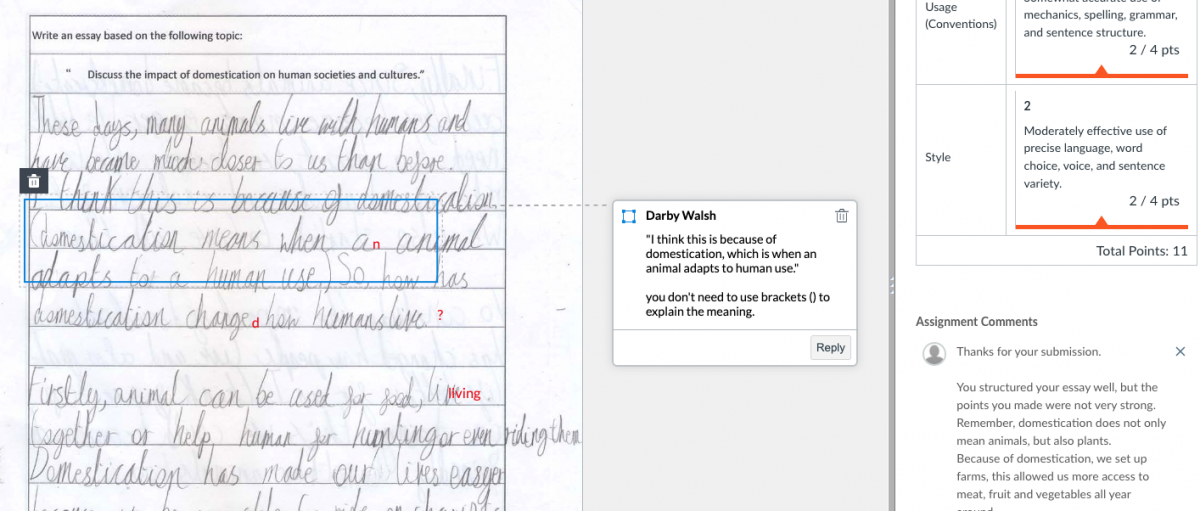 Write an essay based on the following topic:
" Discuss the impact of domestication on human societies and cultures."
These days, many animals live with humans and
have became much closer to us than before.
I think this is because of domestication.
(domestication means when an animal
adapts to a human use.) So, how has
domestication changed how humans live. ?
Firstly, animal can be used for food, living
together or help human for humtingor even riding them
Domestication has made our lives easyer
Darby Walsh
"I think this is because of
domestication, which is when an
animal adapts to human use."
you don't need to use brackets () to
explain the meaning.
Reply
Usage
(Conventions)
mechanics, spelling, grammar,
and sentence structure.
2 / 4 pts
Style
2
Moderately effective use of
precise language, word
choice, voice, and sentence
variety.
2 / 4 pts
Total Points: 11
Assignment Comments
Thanks for your submission.
You structured your essay well, but the
points you made were not very strong.
Remember, domestication does not only
mean animals, but also plants.
Because of domestication, we set up
farms, this allowed us more access to
meat, fruit and vegetables all year